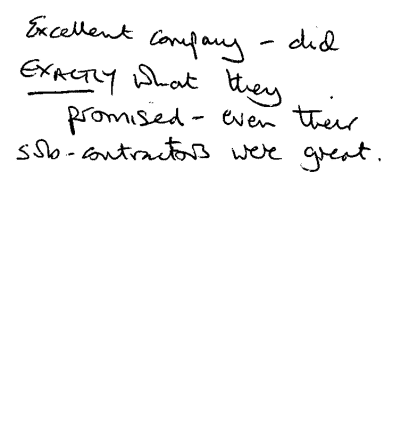 Excellent company - did
EXACTLY what they
promised - even their
sub-contractors were great.